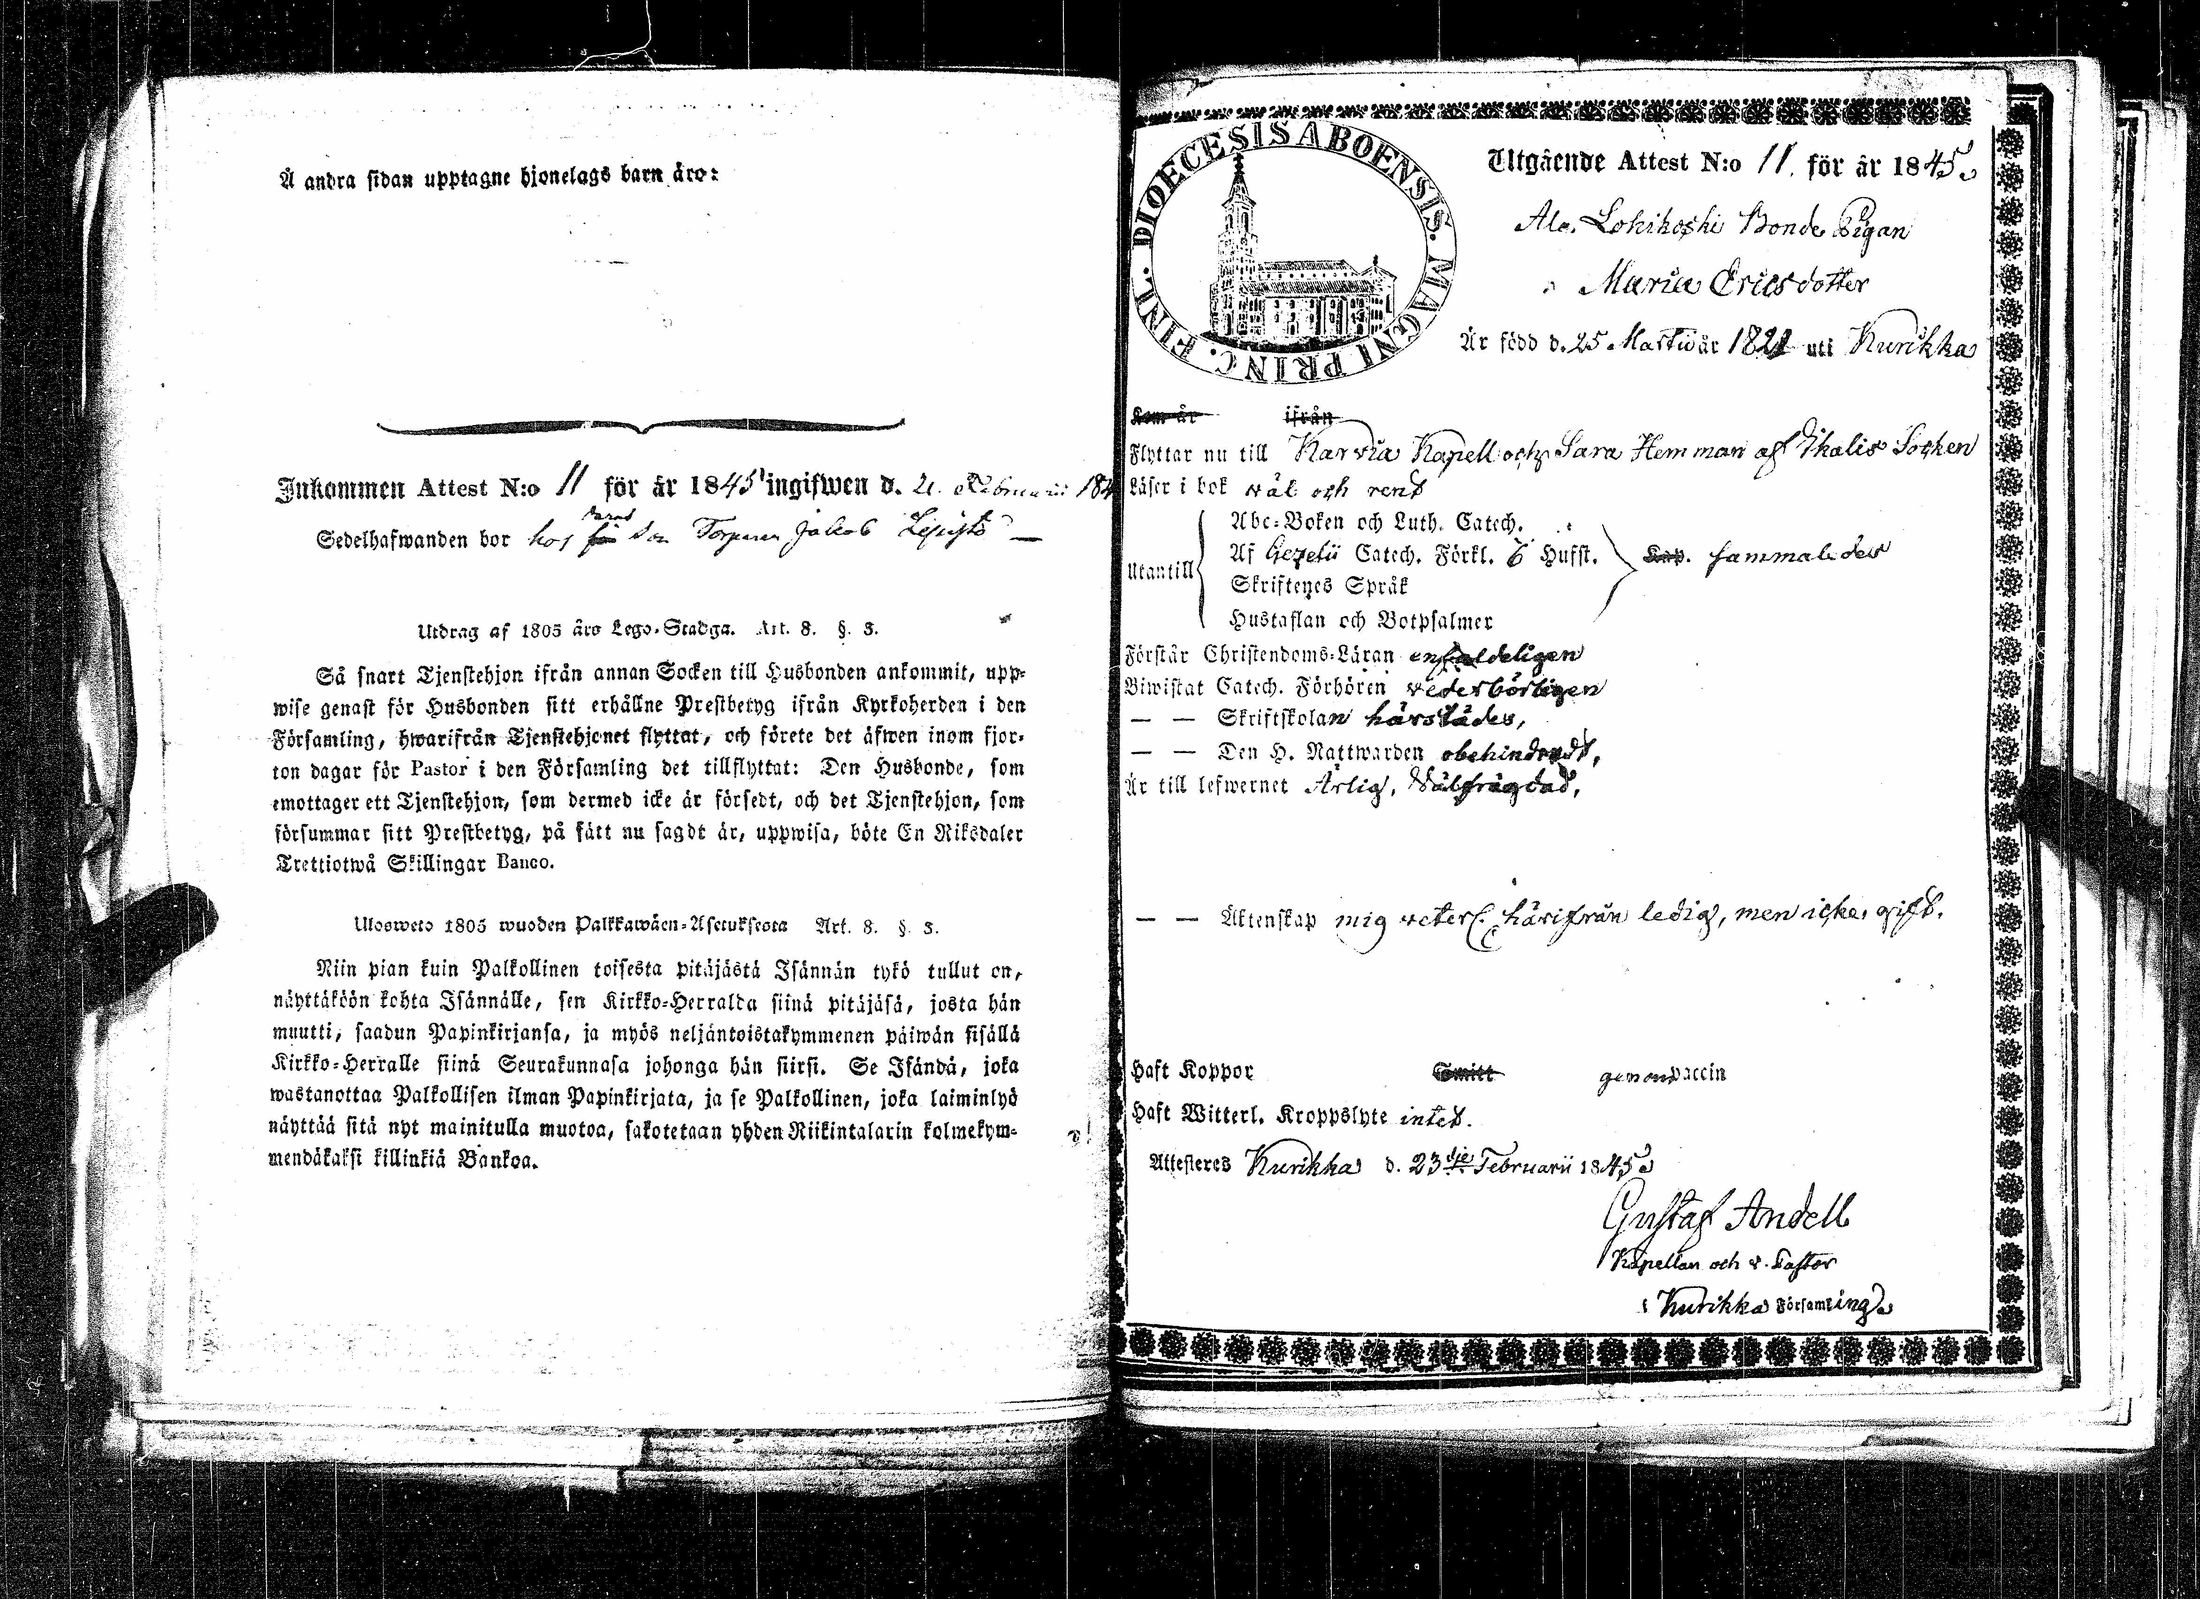 Å andra sidan upptagne hjonelags barn äro:
Inkommen Attest N:o 11 för år 1845 ingifwen d. 184
Sedelhafwanden bor hos Torparen Jakob
Utdrag af 1805 års Lego-Stadga. Art. 8. §. 3.
Så snart Tjenstehjon ifrån annan Socken till Husbonden ankommit, upp-
wise genast för Husbonden sitt erhållne Prestbetyg ifrån Kyrkoherden i den
Församling, hwarifrån Tjenstehjonet flyttat, och förete det äfwen inom fjor-
ton dagar för Pastor i den Församling det tillflyttat: Den Husbonde, som
emottager ett Tjenstehjon, som dermed icke är försedt, och det Tjenstehjon, som
försummar sitt Prestbetyg, på sätt nu sagdt är, uppwisa, böte En Riksdaler
Trettiotwå Skillingar Banco.
Ulosweto 1805 wuoden Palkkawäen-Asetuksesta Art. 8. §. 3.
Niin pian kuin Palkollinen toisesta pitäjästä Isännän tykö tullut on,
näyttäköön kohta Isännälle, sen Kirkko-Herralda siinä pitäjäsä, josta hän
muutti, saadun Papinkirjansa, ja myös neljäntoistakymmenen päiwän sisällä
Kirkko-Herralle siinä Seurakunnasa johonga hän siirsi. Se Isändä, joka
wastanottaa Palkollisen ilman Papinkirjata, ja se Palkollinen, joka laiminlyö
näyttää sitä nyt mainitulla muotoa, sakotetaan yhden Riikintalarin kolmekym-
mendäkaksi killinkiä Bankoa.
DIOECESIS ABOENSIS. MAGNI PRINC. FINL.
Utgående Attest N:o 11. för år 1845.
Bonde Pigan
Maria Ericsdotter
Är född d. 25 Martii år 1821 uti Kurikka
Kom år ifrån
Flyttar nu till Karvia Kapell och Sara Hemman af Ikalis Socken
Läser i bok väl och rent
Utantill
Abc-Boken och Luth. Catech.
Af Gezelii Catech. Förkl. 6 Hufst. Kap. sammaledes
Skriftenes Språk
Hustaflan och Botpsalmer
Förstår Christendoms-Läran enfaldeligen
Biwistat Catech. Förhören vederbörligen
— — Skriftskolan härstädes,
— — Den H. Nattwarden obehindradt,
Är till lefwernet Ärlig, Välfrägdad,
— — Äktenskap mig veterl. härifrån ledig, men icke gift.
Haft Koppor Smitt genom vaccin
Haft Witterl. Kroppslyte intet.
Attesteres Kurikka d. 23dje Februarii 1845.
Gustaf Andell
Kapellan och v. Pastor
i Kurikka Församling.